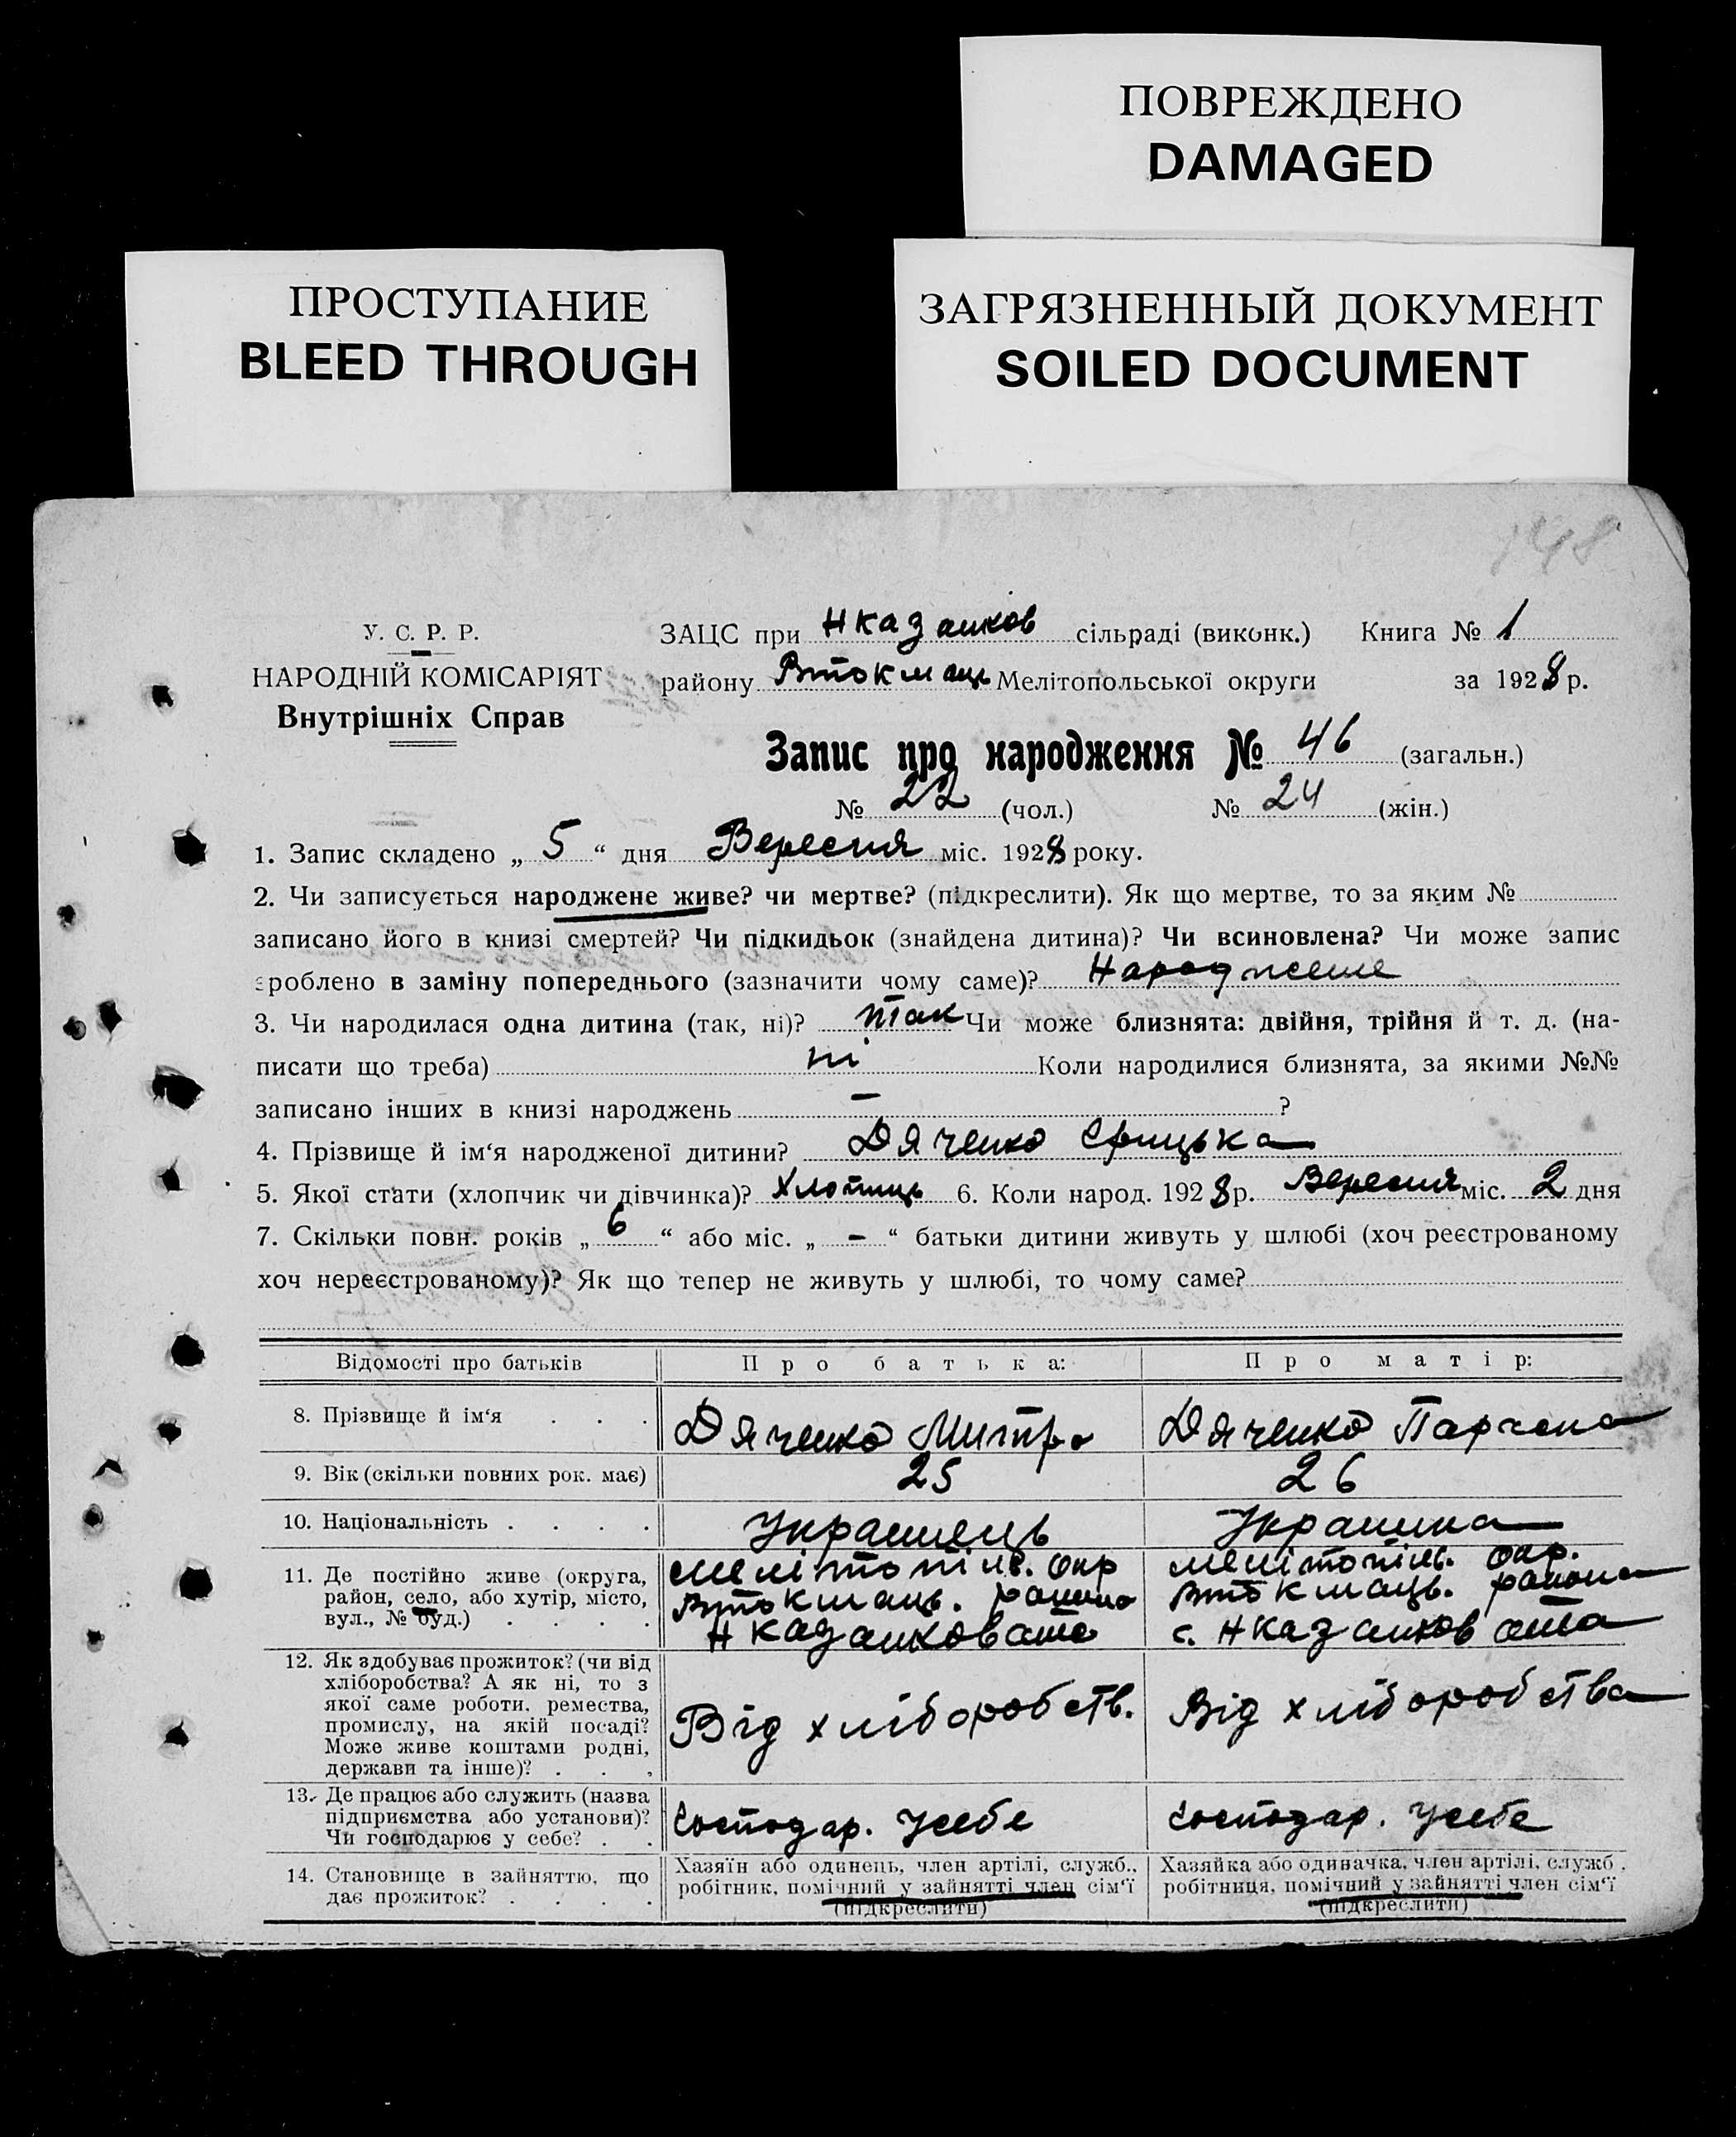 ПОВРЕЖДЕНО
DAMAGED
ПРОСТУПАНИЕ
BLEED THROUGH
ЗАГРЯЗНЕННЫЙ ДОКУМЕНТ
SOILED DOCUMENT
148
У. С. Р. Р.
НАРОДНІЙ КОМІСАРІЯТ
Внутрішніх Справ
ЗАЦС при Н Казанков сільраді (виконк.) Книга № 1
району Втокмаць Мелітопольської округи за 1928 р.
Запис про народження № 46 (загальн.)
№ 22 (чол.) № 24 (жін.)
1. Запис складено „ 5 “ дня Вересня міс. 1928 року.
2. Чи записується народжене живе? чи мертве? (підкреслити). Як що мертве, то за яким №
записано його в книзі смертей? Чи підкидьок (знайдена дитина)? Чи всиновлена? Чи може запис
зроблено в заміну попереднього (зазначити чому саме)? Народжене
3. Чи народилася одна дитина (так, ні)? так Чи може близнята: двійня, трійня й т. д. (на-
писати що треба) ні Коли народилися близнята, за якими №№
записано інших в книзі народжень – ?
4. Прізвище й ім‘я народженої дитини? Дяченко Грицька
5. Якої стати (хлопчик чи дівчинка)? Хлопиць 6. Коли народ. 1928 р. Вересня міс. 2 дня
7. Скільки повн. років „ 6 “ або міс. „ – “ батьки дитини живуть у шлюбі (хоч реєстрованому
хоч нереєстрованому)? Як що тепер не живуть у шлюбі, то чому саме?
Відомості про батьків Про батька: Про матір:
8. Прізвище й ім‘я . . . Дяченко Митро Дяченко
9. Вік (скільки повних рок. має) 25 26
10. Національність . . . . Украинець Украинка
11. Де постійно живе (округа,
район, село, або хутір, місто,
вул., № буд.) . . . .
Мелітопілв. окр
Втокмаць. района
Н Казанковата
Мелітопілв. окр.
Втокмаць. района
с. Н Казанковата
12. Як здобуває прожиток? (чи від
хліборобства? А як ні, то з
якої саме роботи, ремества,
промислу, на якій посаді?
Може живе коштами родні,
держави та інше)? . . .
Від хліборобств. Від хліборобства
13. Де працює або служить (назва
підприємства або установи)?
Чи господарює у себе? . .
Господар. у себе Господар. у себе
14. Становище в зайняттю, що
дає прожиток? . . . .
Хазяїн або одинець, член артілі, служб.,
робітник, помічний у зайнятті член сім‘ї
(підкреслити)
Хазяйка або одиначка, член артілі, служб.
робітниця, помічний у зайнятті член сім‘ї
(підкреслити)